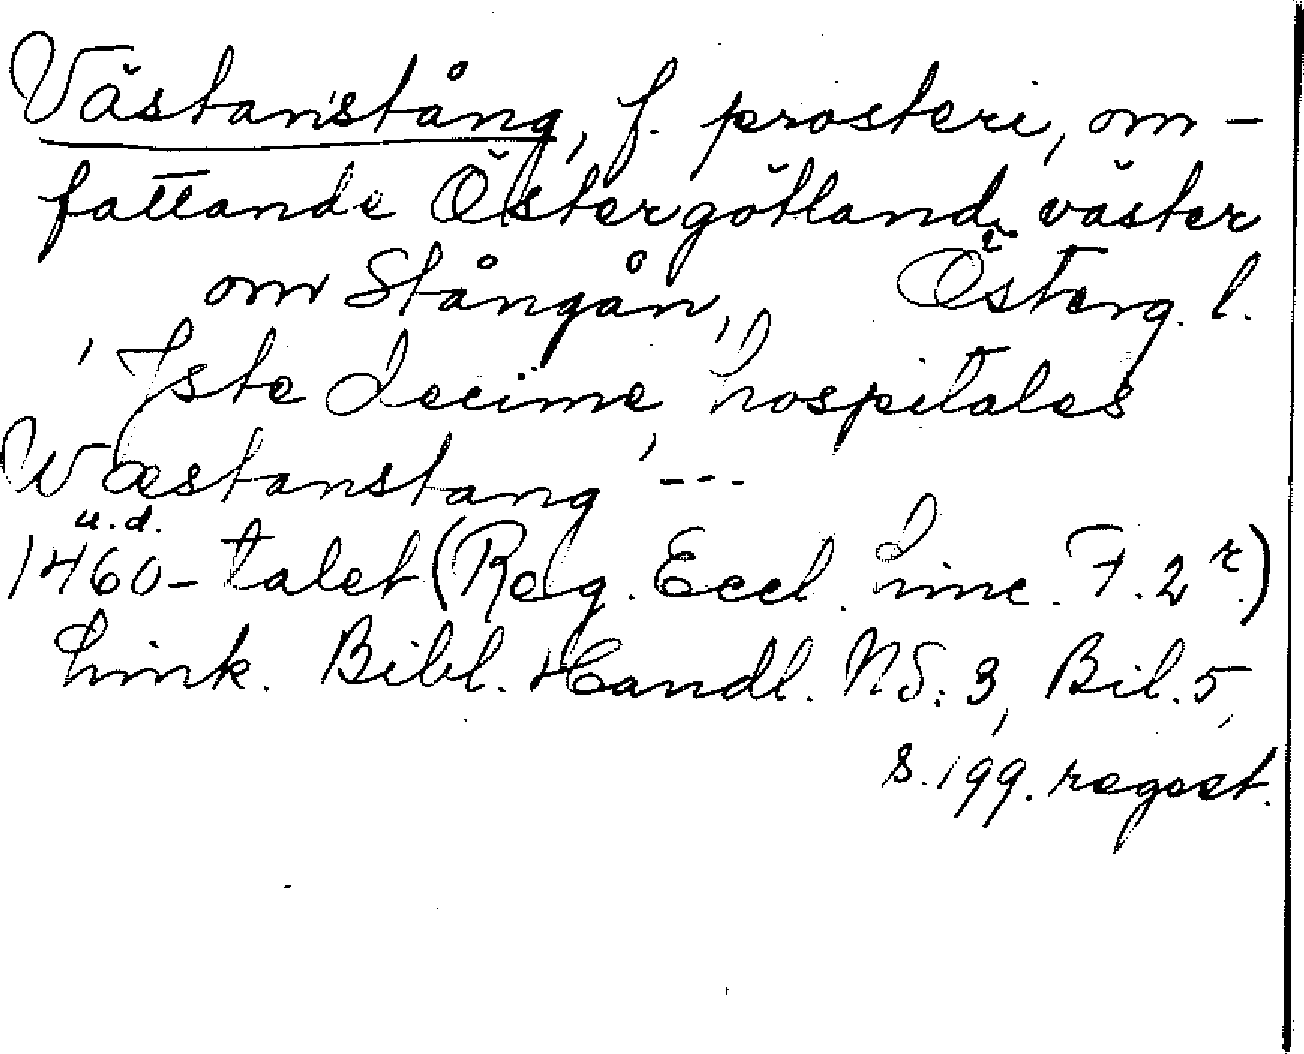 Västanstång, f. prosteri, om-
fattande Östergötland väster
om Stångån, Österg. l.
, Iste decime, hospitales
Wæstanstang ---
u.d.
1460-talet (Reg. Eccl. Linc. F. 2 r.)
Link. Bibl. Handl. NS: 3, Bil. 5,
s. 199. regest.